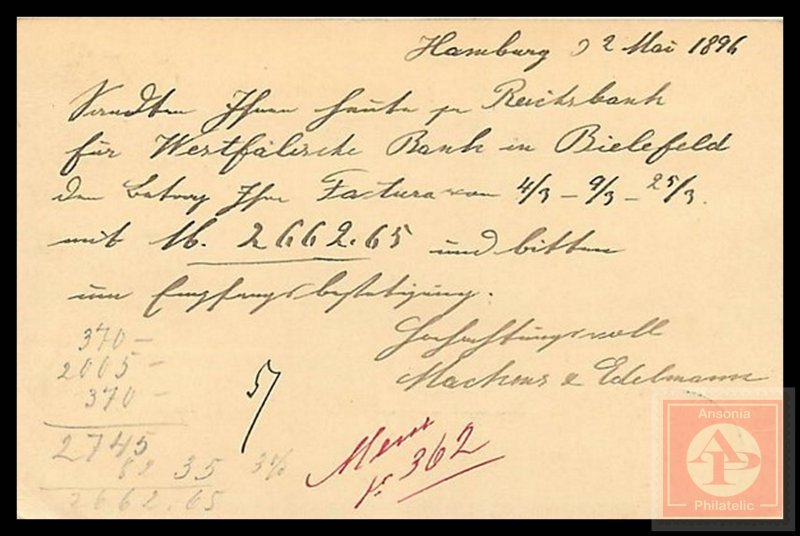 Hamburg d 2 Mai 1896
Sandten Ihnen heute pr Reichsbank
für Westfälische Bank in Bielefeld
den Betrag Ihrer Factura von 4/3 – 9/3 – 25/3.
mit M. 2662.65 und bitten
um Empfangsbestätigung.
Hochachtungsvoll
Machens & Edelmann
370 –
2005 –
370 –
2745
82 35 3%
2662.65
362
Ansonia
AP
Philatelic